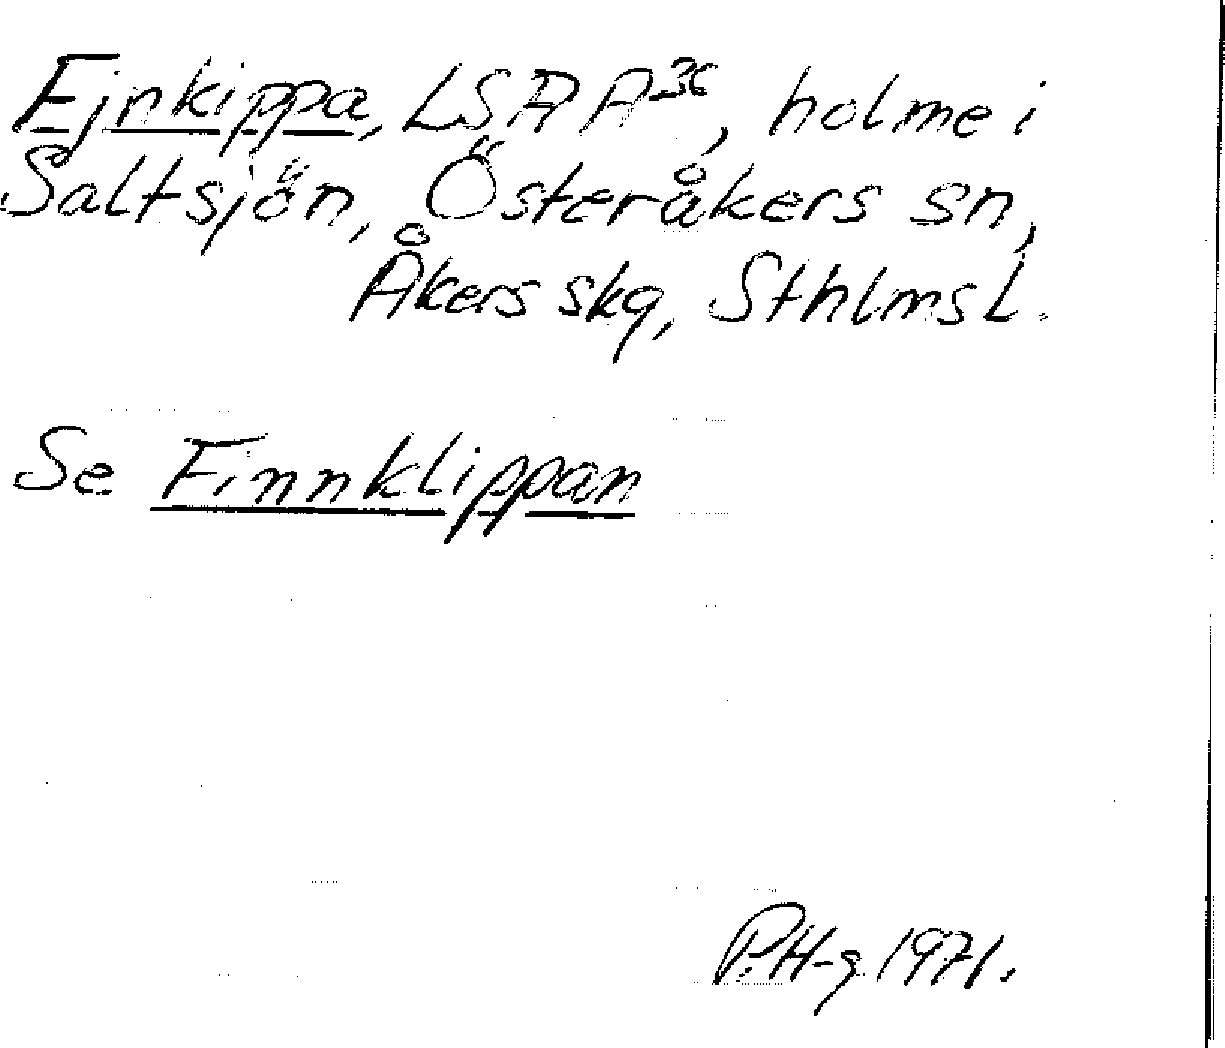 Fjnkippa, LSA A³⁶, holme i
Saltsjön, Österåkers sn,
Åkers skg, Sthlms L.
Se Finnklippan
P.H-g. 1971.